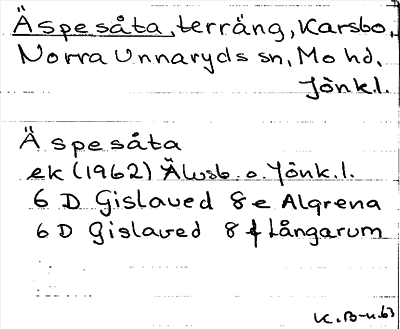 Äspesåta, terräng, Karsbo,
Norra Unnaryds sn, Mo hd,
Jönk.l.
Äspesåta
ek (1962) Älvsb. o. Jönk.l.
6 D Gislaved 8 e Algrena
6 D Gislaved 8 f Långarum
K.B-n.63